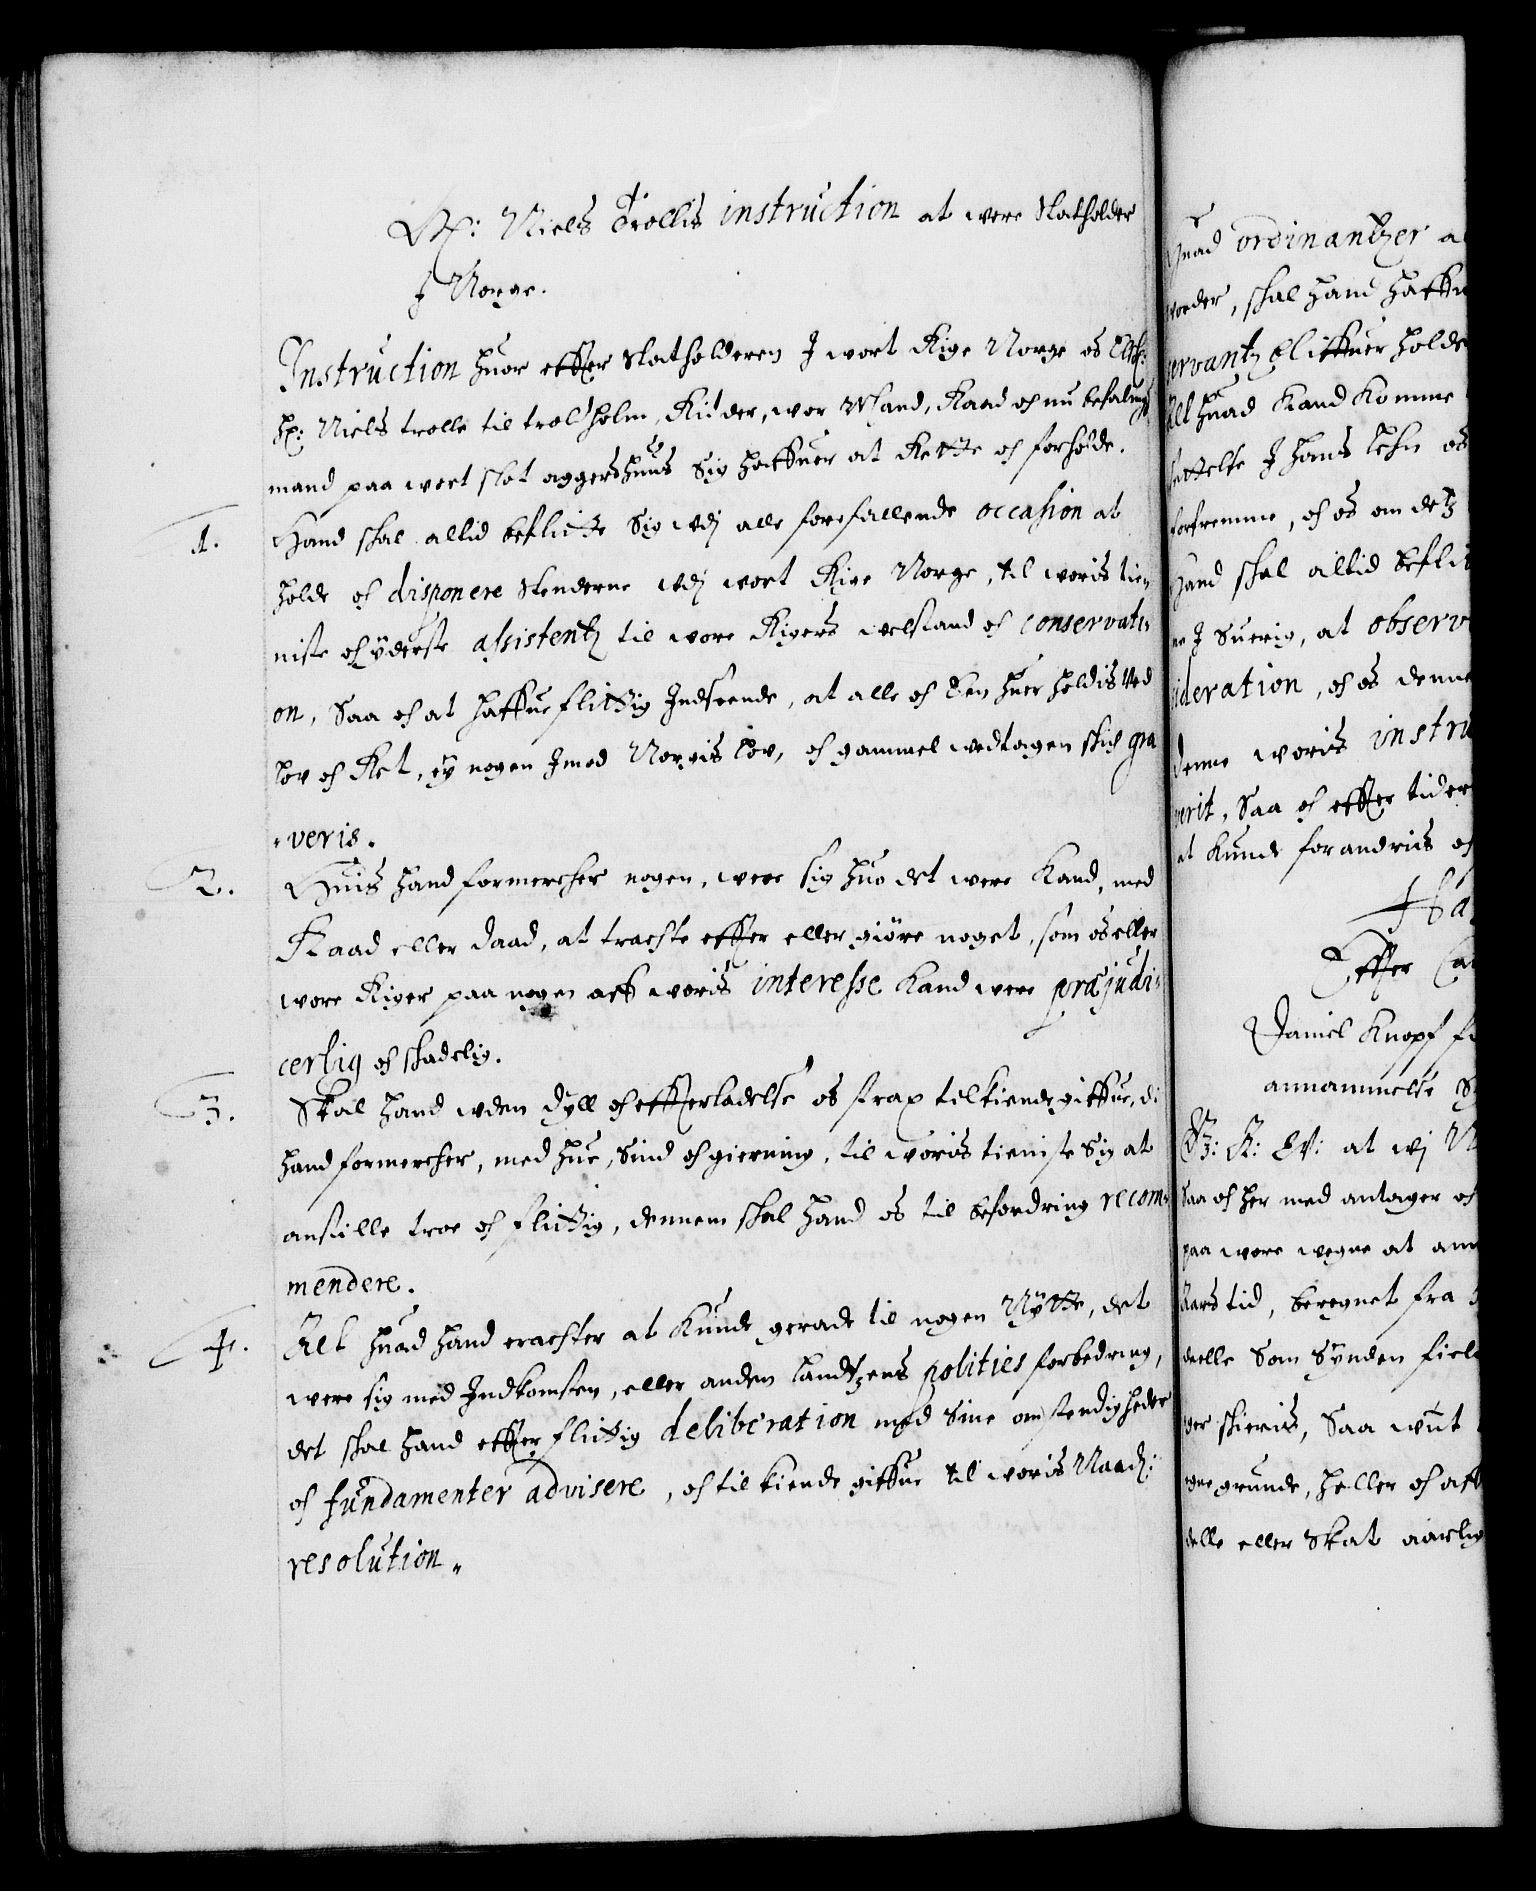 Hr: Niels Trollis instruction at were Statholder
J Norge.
Instruction huor effter Statholderen J wort Rige Norge os Elsch:
Hr: Niels trolle til trolsholm, Ridder, wor Mand, Raad och nu befalings
mand paa wort slot aggershuus Sig haffuer at Rette och forholde.
1. Hand skal altid beflitte Sig udj alle forefallende occasion at
holde och disponere Stenderne udj wort Rige Norge, til woris tie,
niste och yderste assistentz til wore Rigers welstand och conservati,
on, Saa och at haffue flittig Indseende, at alle och Een huer holdis Ved
lov och Ret, ey nogen Jmod Norgis lov, och gammel wedtagen skich gra
,veris.
2. Huis hand formercher nogen, were sig huo det were kand, med
Raad eller daad, at tracte effter eller giöre noget, som os eller
wore Riger paa nogen aff woris interesse kand were præjudi,
cerlig och skadelig.
3. Skal hand uden dyll och effterladelse os strax tilkiende giffue, di
hand formercher, med hue, Sind och gierning, til woris tieniste Sig at
anstille troe och flittig, dennem skal hand os til befordring recom,
mendere.
4. Alt huad hand eracter at kunde gerade til nogen Nytte, det
were sig med Indkomsten, eller anden landtzens polities forbedring,
det skal hand effter flittig deliberation med Sine omstendigheder
och fundamenter advisere, och til kiende giffue til woris Naad:
resolution.
Huad ordinantzer a
worder, skal hand haffue
servantz flittuer holde
Alt huad kand komme
settelse J hans lehn os
forfremme, och os om detz
Hand skal altid beflit
ne J Suerig, at observ
ideration, och os denne
denne woris instru
verit, Saa och effter tider
at kunde forandris och
Effter
Daniel Knopf f
annammelse S
G: A: V: at wj
Saa och her med antager och
paa wore wegne at ann
Aars tid, beregnet fra
deelle Som Synden field
ger skieris, Saa wit
egne grunde, heller och aff
delle eller Skat aarlig